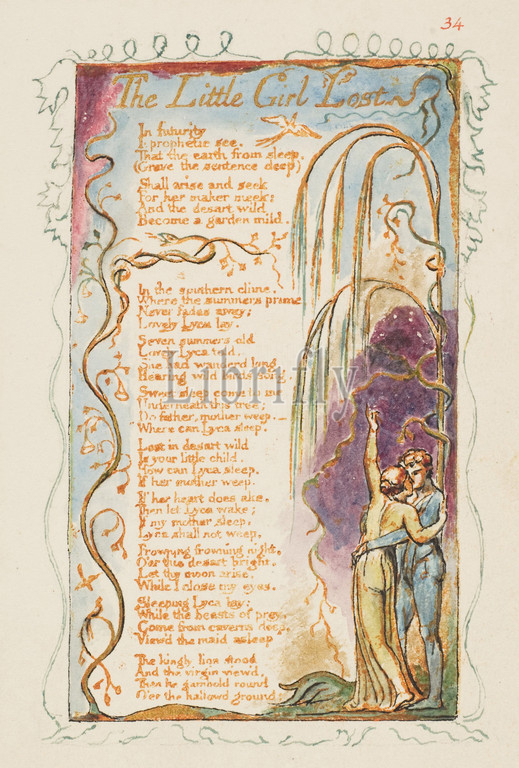 34
The Little Girl Lost
In futurity
I prophetic see.
That the earth from sleep.
(Grave the sentence deep)
Shall arise and seek
For her maker meek:
And the desart wild
Become a garden mild.
In the southern clime.
Where the summers prime
Never fades away;
Lovely Lyca lay.
Seven summers old
Lovely Lyca told.
She had wanderd long.
Hearing wild birds song.
Sweet sleep come to me
Underneath this tree;
Do father, mother weep.
Where can Lyca sleep.
Lost in desart wild
Is your little child.
How can Lyca sleep.
If her mother weep.
If her heart does ake.
Then let Lyca wake;
If my mother sleep,
Lyca shall not weep.
Frowning frowning night,
O'er this desart bright.
Let thy moon arise.
While I close my eyes.
Sleeping Lyca lay;
While the beasts of prey,
Come from caverns deep,
View'd the maid asleep
The kingly lion stood
And the virgin view'd.
Then he gambold round
O'er the hallowd ground:
Librifly